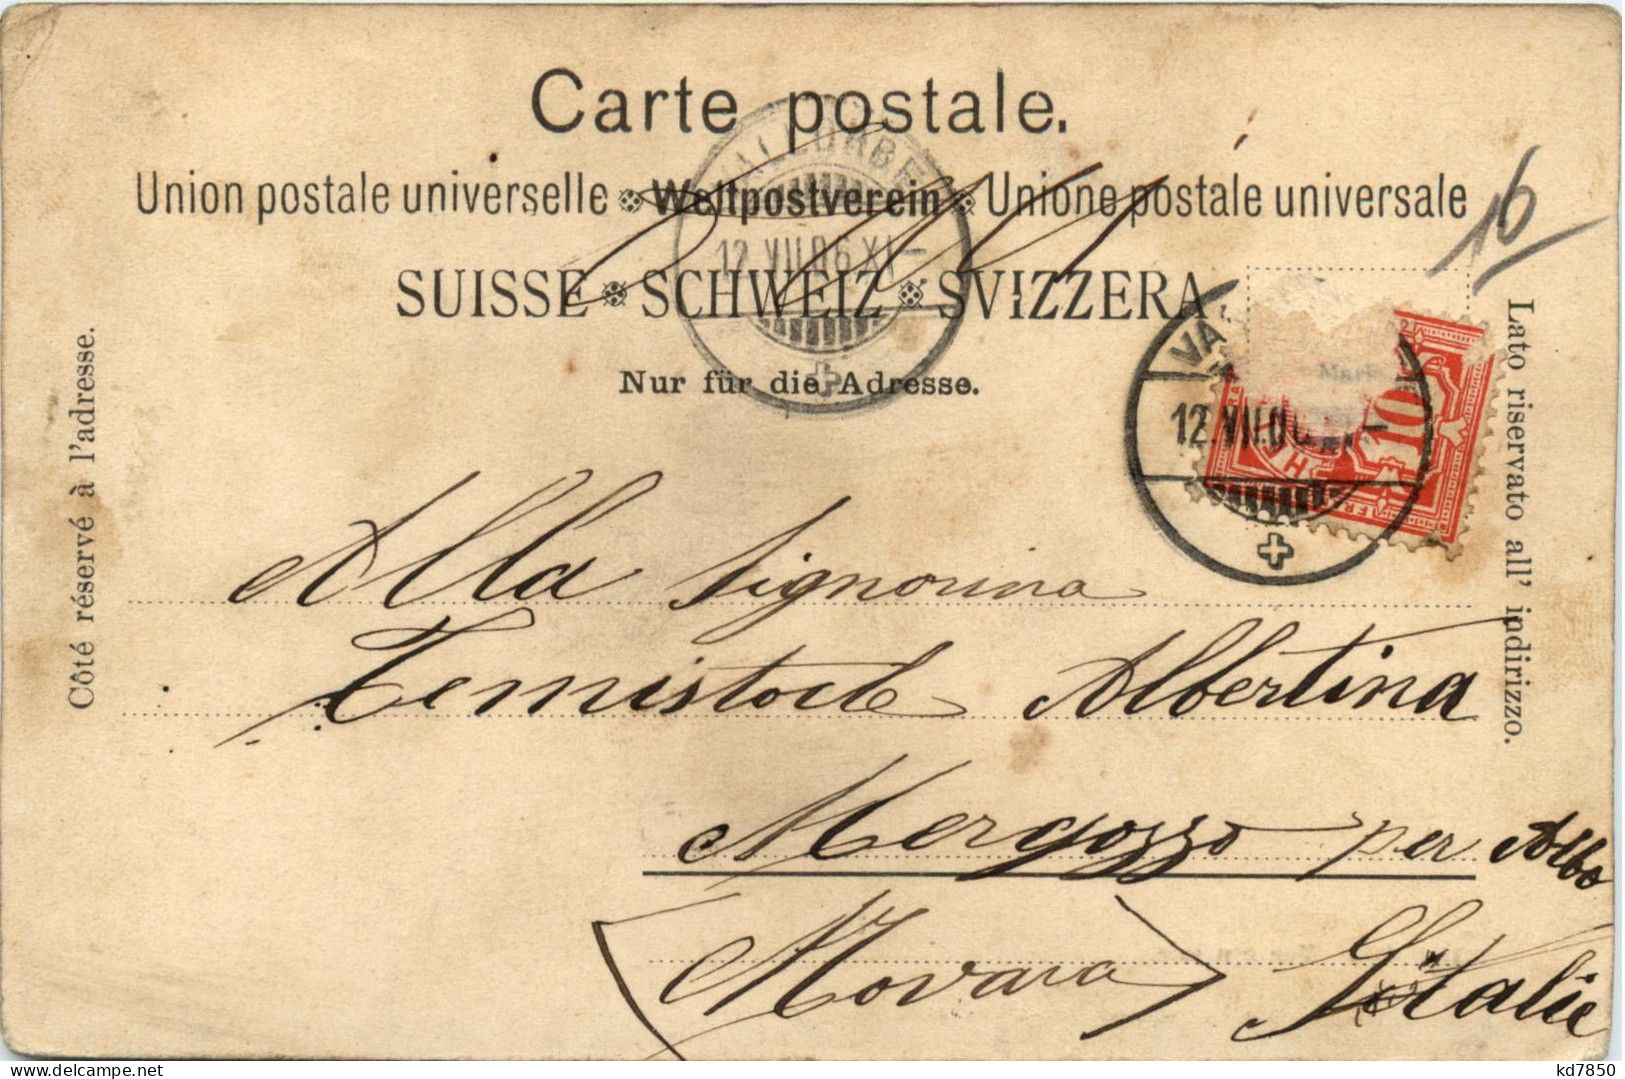 Carte postale.
Union postale universelle Weltpostverein Unione postale universale
16
SUISSE SCHWEIZ SVIZZERA
Nur für die Adresse.
VALLORBE
12.VII.06.XI-
VA
12.VII.0
10
Côté réservé à l'adresse.
Lato riservato all' indirizzo.
Alla Signorina
Temistocle Albertina
Mergozzo per Albo
(Novara) Italie
kd7850